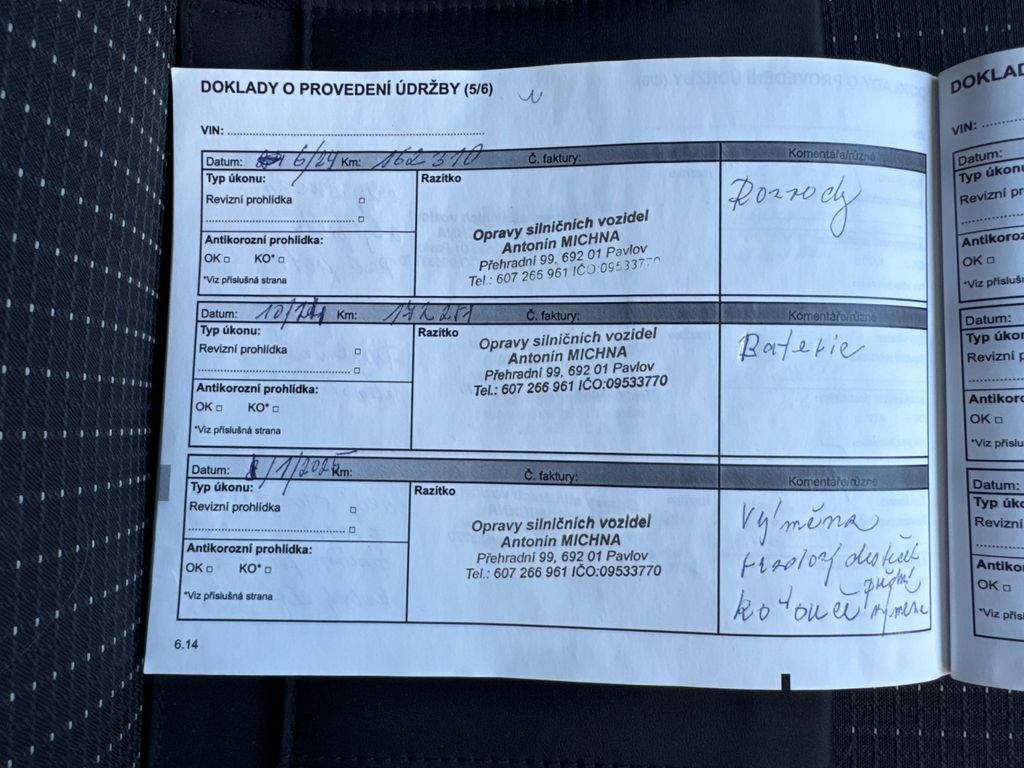 DOKLADY O PROVEDENÍ ÚDRŽBY (5/6)
VIN:
Datum: 6/24 Km: 162 310 Č. faktury: Komentáře/různé
Typ úkonu: Razítko
Rozvody
Revizní prohlídka
Opravy silničních vozidel
Antonín MICHNA
Přehradní 99, 692 01 Pavlov
Tel.: 607 266 961 IČO:0953377
Antikorozní prohlídka:
OK KO*
*Viz příslušná strana
Datum: 10/24 Km: 172 251 Č. faktury: Komentáře/různé
Typ úkonu: Razítko
Baterie
Revizní prohlídka
Opravy silničních vozidel
Antonín MICHNA
Přehradní 99, 692 01 Pavlov
Tel.: 607 266 961 IČO:09533770
Antikorozní prohlídka:
OK KO*
*Viz příslušná strana
Datum: /1/2025 Km: Č. faktury: Komentáře/různé
Typ úkonu: Razítko
Revizní prohlídka
Opravy silničních vozidel
Antonín MICHNA
Přehradní 99, 692 01 Pavlov
Tel.: 607 266 961 IČO:09533770
Výměna
destiček
přední
kotouče
Antikorozní prohlídka:
OK KO*
*Viz příslušná strana
6.14
DOKLAD
VIN:
Datum:
Typ úkonu
Revizní p
Antikoroz
OK
*Viz přísl
Datum:
Typ úko
Revizní p
Antikoro
OK
*Viz přís
Datum:
Typ úk
Revizní
Antiko
OK
*Viz přís